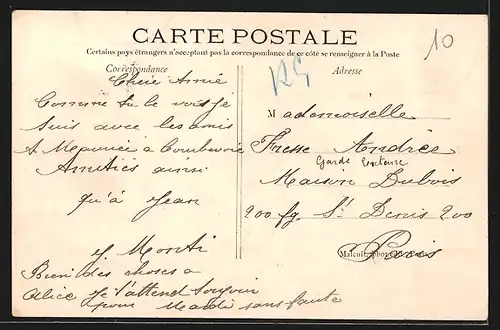 CARTE POSTALE
Certains pays étrangers n'acceptant pas la correspondance de ce côté se renseigner à la Poste
10
Correspondance
Chère Amie
Comme tu le vois je
suis avec les amis
A Courbevoie
Amitiés ainsi
qu'à Jean
Y. Monti
Bien des choses a
Alice Je l'attend
pour Mardi sans faute
Adresse
Mademoiselle
Fresse Andrée
Garde
Maison Dubois
200 fg. St Denis 200
Paris